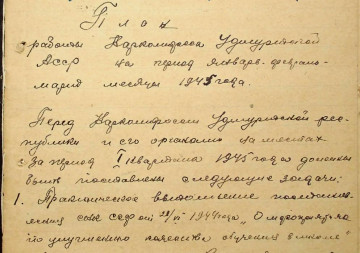 План
работы Наркомпроса Удмуртской
АССР на период январь-феврал-
март месяцы 1945 года.
Перед Наркомпросом Удмуртской рес-
публики и его органами на местах
за период I квартала 1945 года должны
быть поставлены следующие задачи:
1. Практическое выполнение постанов-
ления СНК СССР от 1944 года „О мероприятиях
по улучшению качества обучения в школе"